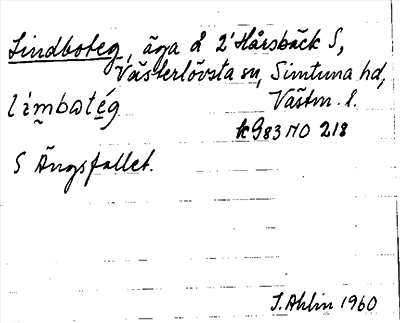 Lindboteg, äga å 2' Hårsbäck S,
Västerlövsta sn, Simtuna hd,
limbatég Västm. l.
k 983 NO 218
S Ängsfallet.
S. Ahlin 1960